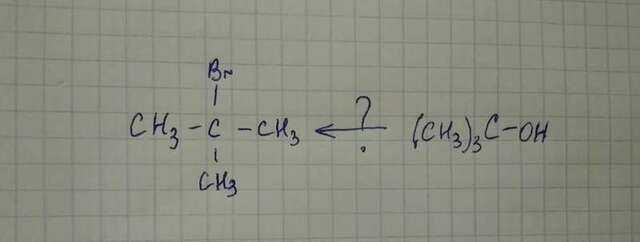 Br
CH₃ - C - CH₃ ← ? (CH₃)₃C-OH
CH₃